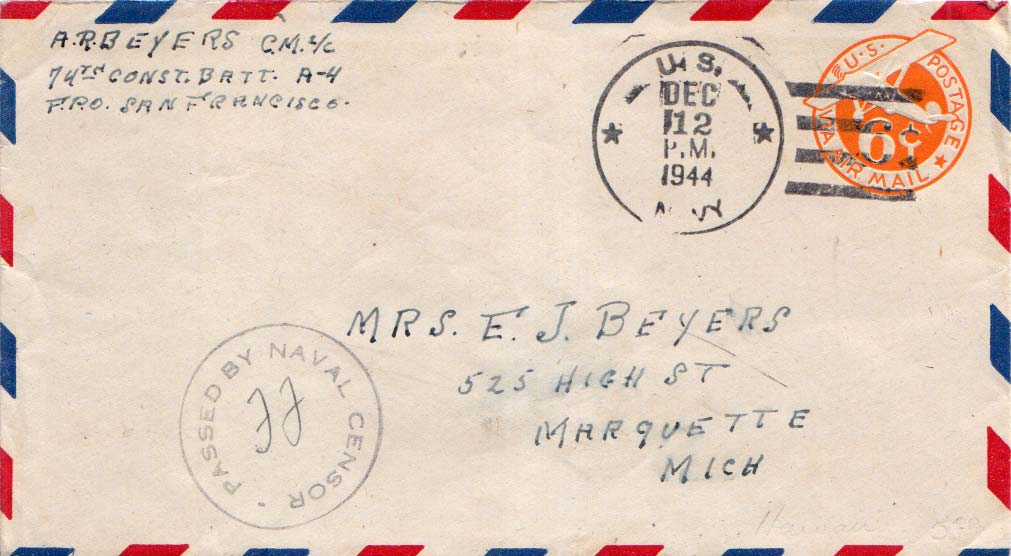 A.R.BEYERS C.M.2/C
74TH CONST. BATT. A-4
F.P.O. SAN FRANCISCO.
U.S.
DEC
12
P.M.
1944
NAVY
U.S. POSTAGE
6¢
VIA AIR MAIL
MRS. E. J. BEYERS
525 HIGH ST
MARQUETTE
MICH
PASSED BY NAVAL CENSOR